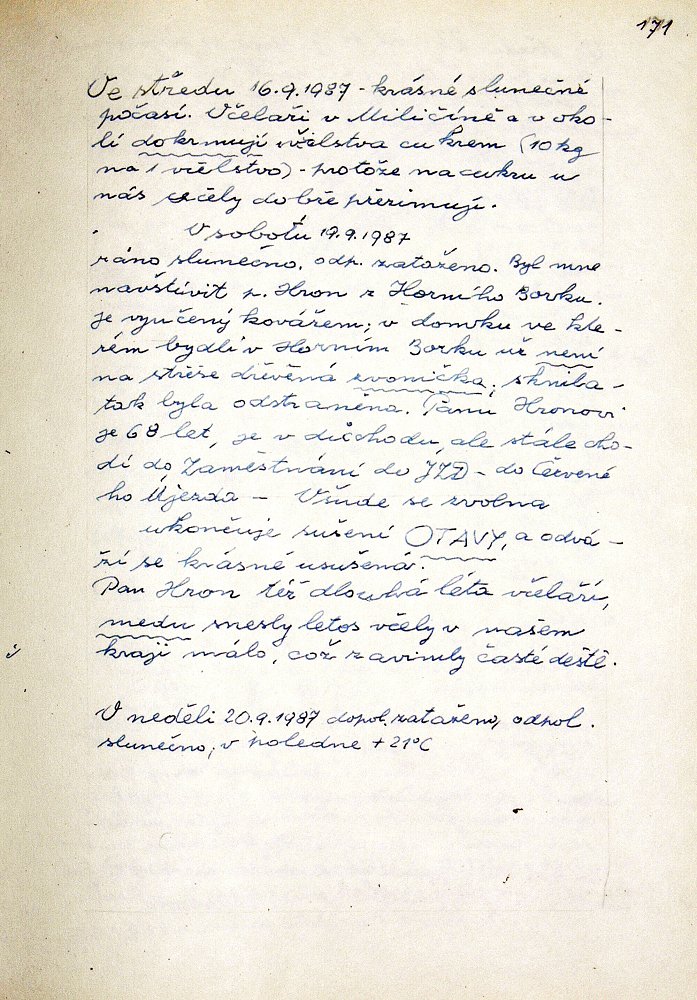 171
Ve středu 16.9.1987 - krásné slunečné
počasí. Včelaři v Miličíně a v oko-
lí dokrmují včelstva cukrem (10 kg
na 1 včelstvo) - protože na cukru u
nás včely dobře přezimují.
V sobotu 19.9.1987
ráno slunečno, odp. zataženo. Byl mne
navštívit p. Hron z Horního Borku.
Je vyučený kovářem; v domku ve kte-
rém bydlí v Horním Borku už není
na střeše dřevěná zvonička; shnila -
tak byla odstraněna. Panu Hronovi
je 68 let, je v důchodu, ale stále cho-
dí do Zaměstnání do JZD - do Červené
ho Újezda - Všude se zvolna
ukončuje sušení OTAVY, a odvá -
ží se krásně usušená.
Pan Hron též dlouhá léta včelaří,
medu snesly letos včely v našem
kraji málo, což zavinily časté deště.
V neděli 20.9.1987 dopol. zataženo, odpol.
slunečno, v poledne +21°C